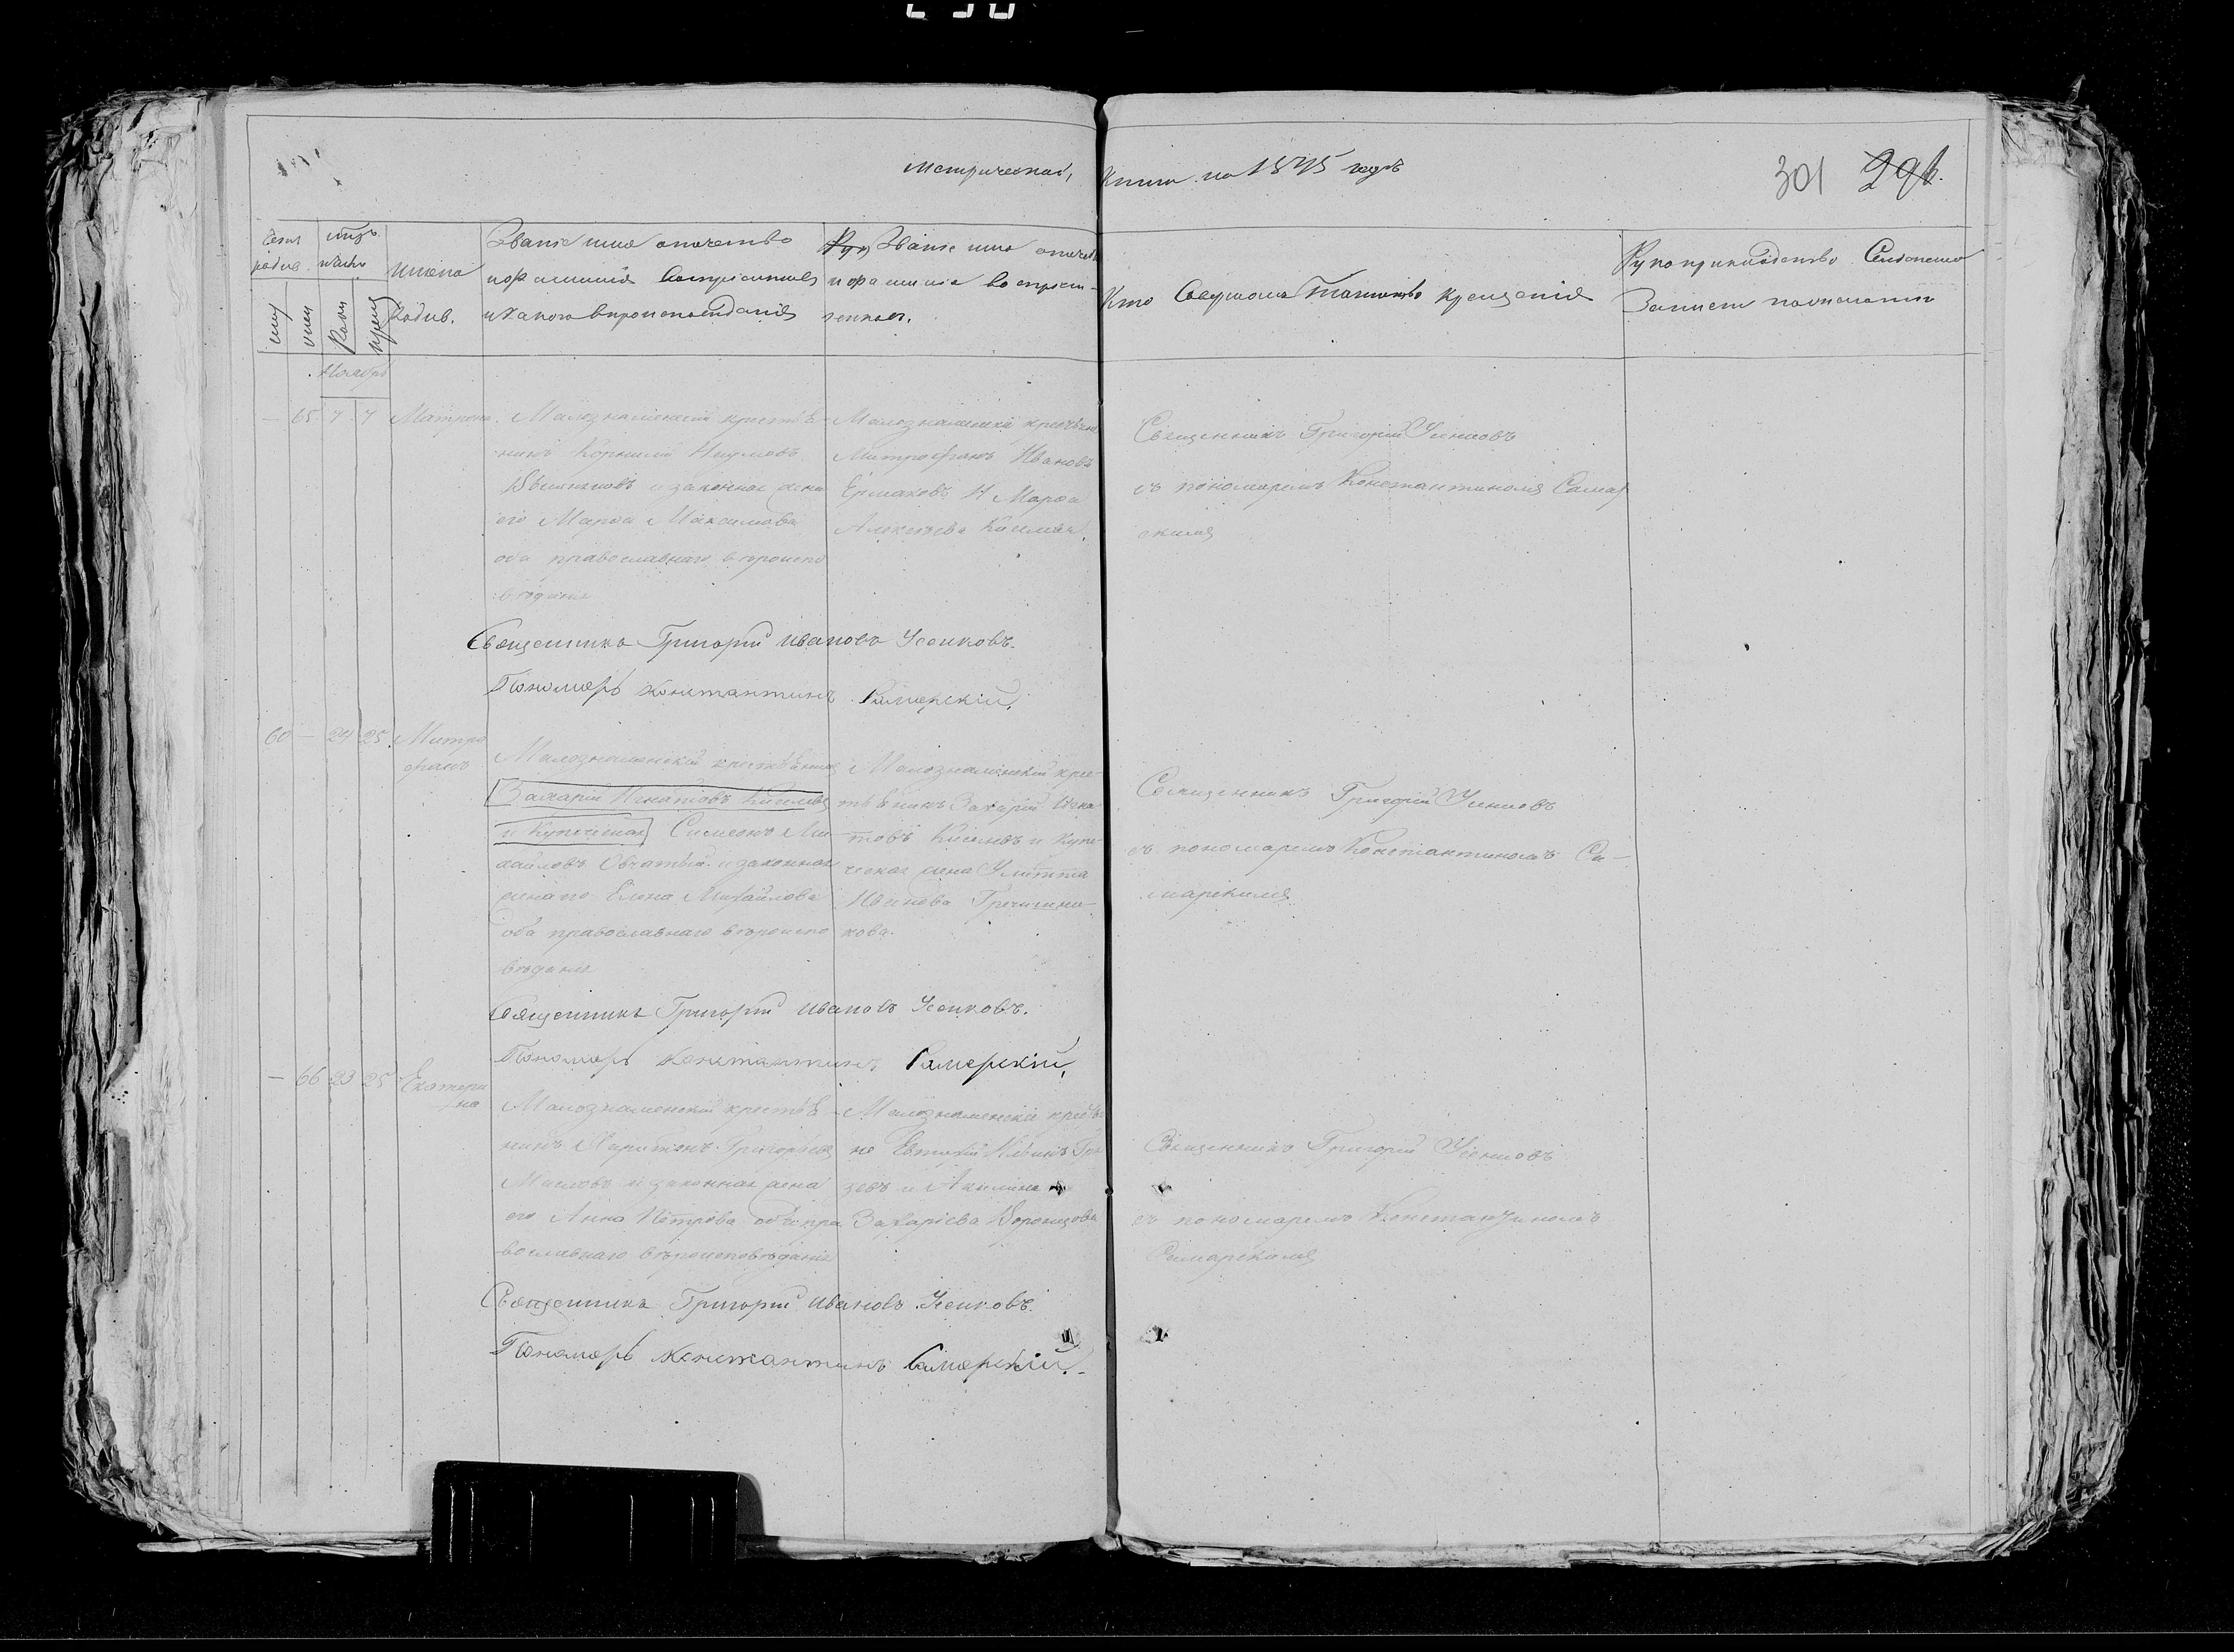 Метрической, книги на 1875 годъ
301 298.
Счетъ родив. мѣсяцъ
Имена родив.
Званіе имя отчество
и фамилия
и какого вѣроисповѣданія
Званіе имя отчество
и фамилия воспріем-
никовъ.
Кто совершалъ таинство крещенія
Рукоприкладство свидѣтелей
записи по желанію
муж жен Рожд крещ
Ноябрь
— 65 7 7 Матрона.
Малознаменскій крестья-
нинъ Корнилій Наумовъ
и законная жена
его Марѳа Максимова
оба православнаго вѣроиспо
вѣданія
Малознаменскій крестьянинъ
Митрофанъ Ивановъ
Ермаковъ И Марѳа
Алексѣева
Священникъ Григорій Усенковъ
съ пономаремъ Константиномъ Самар
скимъ
Священникъ Григорій Ивановъ Усенковъ.
Пономарь Константинъ Самарскій.
60 — 24 25 Митро
фанъ
Малознаменскій крестьянинъ
Захарій Игнатовъ Киселевъ
и Купеческая Симеонъ Ми-
хайловъ Овчатый и законная
жена его Елена Михайлова
оба православнаго вѣроиспо
вѣданія
Малознаменскій крес-
тьянинъ Захарій Игна-
товъ Киселевъ и Купе-
ческая жена Улитта
Иванова Гречишни-
кова.
Священникъ Григорій Усенковъ
съ пономаремъ Константиномъ Са-
марскимъ
Священникъ Григорій Ивановъ Усенковъ.
Пономарь Константинъ Самарскій.
— 66 23 25 Екатери
на
Малознаменскій крестья-
нинъ Харитонъ Григорьевъ
Масловъ и законная жена
его Анна Петрова оба пра
вославнаго вѣроисповѣданія
Малознаменскіе крестья
не Евтихій
и Акилина
Захаріева Воронцова
Священникъ Григорій Усенковъ
съ пономаремъ Константиномъ
Самарскимъ
Священникъ Григорій Ивановъ Усенковъ.
Пономарь Константинъ Самарскій.